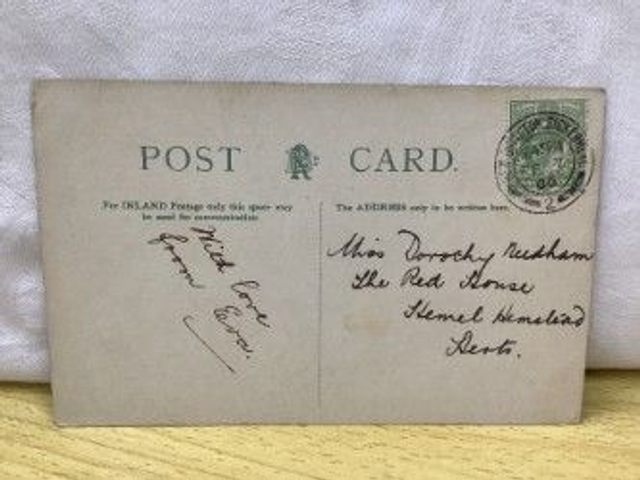 POST CARD.
For INLAND Postage only this space may
be used for communication.
The ADDRESS only to be written here.
With love
from Eva.
Miss Dorothy Needham
The Red House
Hemel Hemstead
Herts.
2